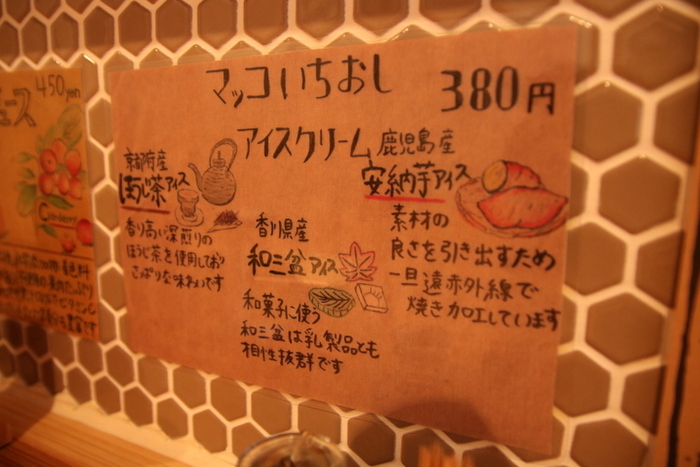 450yen
ュース
Cranberry
マッコいちおし 380円
アイスクリーム
京都府産
ほうじ茶アイス
香り高い深煎りの
ほうじ茶を使用しており
さっぱりな味わいです
香川県産
和三盆アイス
和菓子に使う
和三盆は乳製品とも
相性抜群です
鹿児島産
安納芋アイス
素材の
良さを引き出すため
一旦遠赤外線で
焼き加工しています